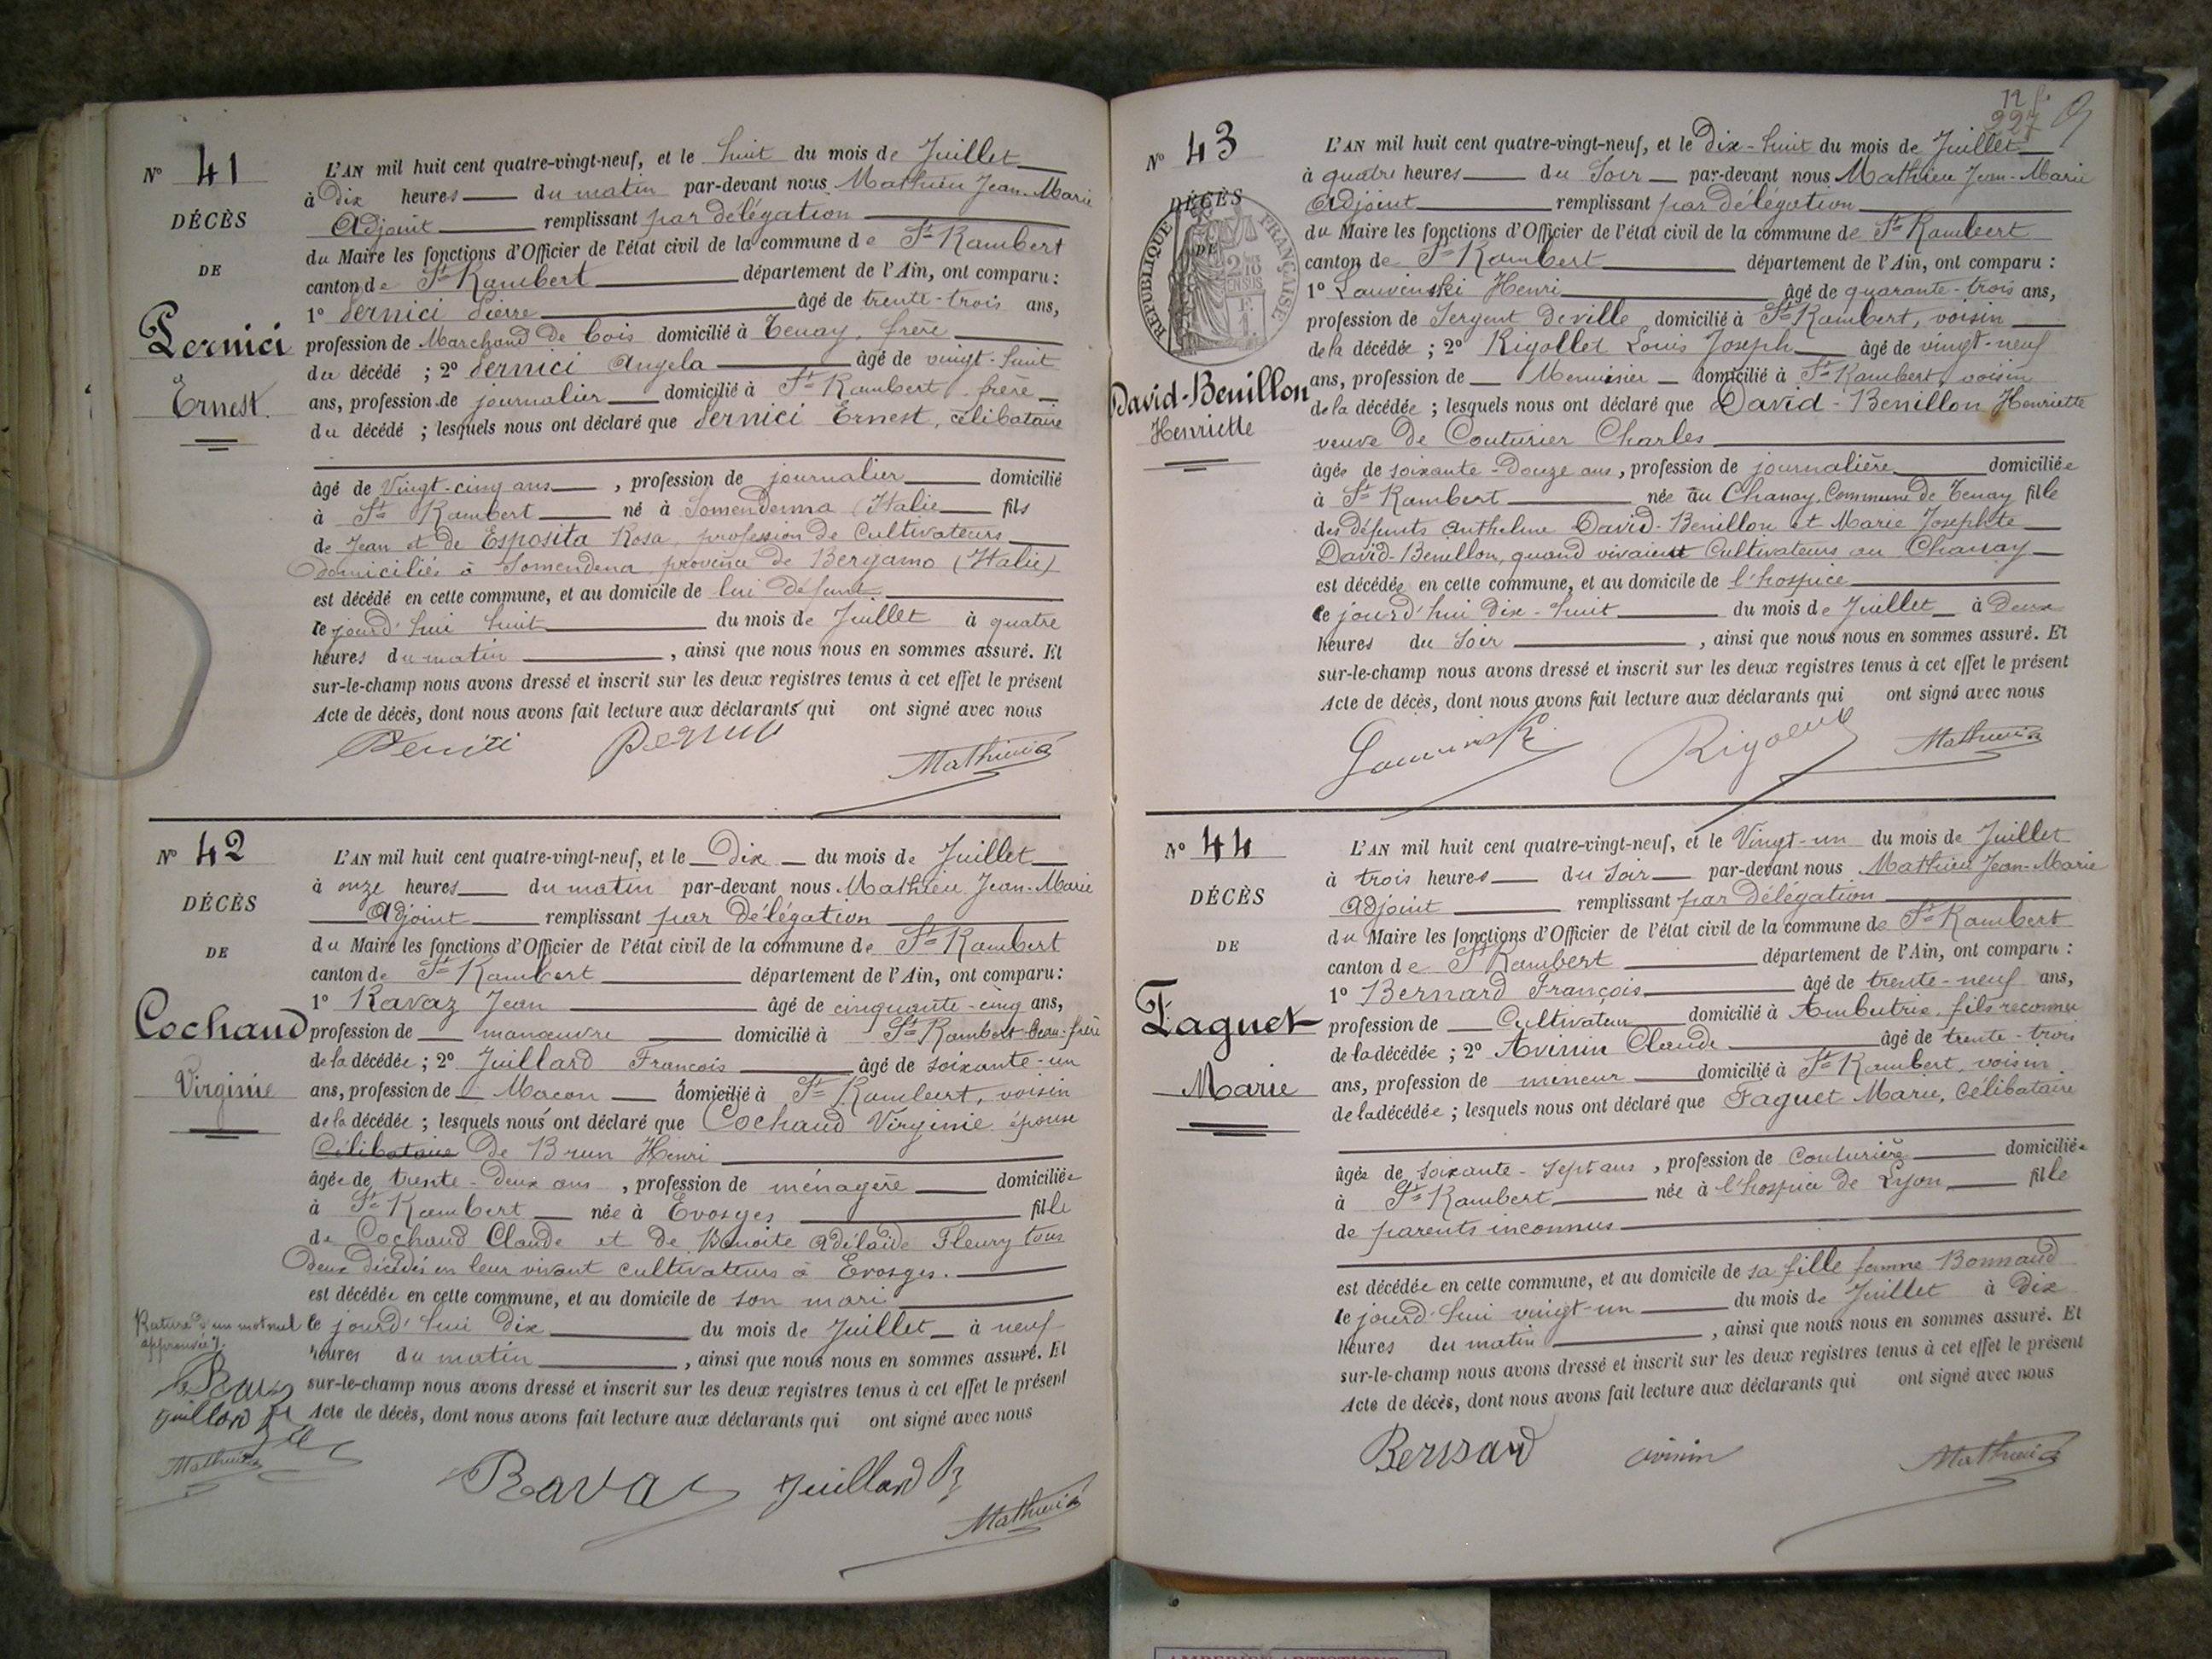 N° 41
DÉCÈS
DE
Pernici
Ernest.
L'AN mil huit cent quatre-vingt-neuf, et le huit du mois de Juillet
à Dix heures du matin par-devant nous Mathieu Jean-Marie
Adjoint remplissant par délégation
du Maire les fonctions d'Officier de l'état civil de la commune de St Rambert
canton de St Rambert département de l'Ain, ont comparu :
1° Pernici Pierre âgé de trente-trois ans,
profession de Marchand de bois domicilié à Tenay, frère
du décédé ; 2° Pernici Angela âgé de vingt-huit
ans, profession de journalier domicilié à St Rambert, frère
du décédé ; lesquels nous ont déclaré que Pernici Ernest, célibataire
âgé de Vingt-cinq ans, profession de journalier domicilié
à St Rambert né à Somendenna (Italie fils
de Jean et de Esposita Rosa, profession de Cultivateurs
domiciliés à Somendena, province de Bergamo (Italie)
est décédé en cette commune, et au domicile de lui défunt
le jourd'hui huit du mois de Juillet à quatre
heures du matin, ainsi que nous nous en sommes assuré. Et
sur-le-champ nous avons dressé et inscrit sur les deux registres tenus à cet effet le présent
Acte de décès, dont nous avons fait lecture aux déclarants qui ont signé avec nous
Mathieu
N° 42
DÉCÈS
DE
Cochaud
Virginie
L'AN mil huit cent quatre-vingt-neuf, et le Dix du mois de Juillet
à onze heures du matin par-devant nous Mathieu Jean-Marie
Adjoint remplissant par délégation
du Maire les fonctions d'Officier de l'état civil de la commune de St Rambert
canton de St Rambert département de l'Ain, ont comparu :
1° Ravaz Jean âgé de cinquante-cinq ans,
profession de manœuvre domicilié à St Rambert Beau-frère
de la décédée ; 2° Juillard François âgé de soixante-un
ans, profession de Maçon domicilié à St Rambert, voisin
de la décédée ; lesquels nous ont déclaré que Cochaud Virginie épouse
Célibataire de Brun Henri
âgée de trente-deux ans, profession de ménagère domiciliée
à St Rambert née à Evosges fille
de Cochaud Claude et de Benoite Adélaïde Fleury tous
deux décédés en leur vivant cultivateurs à Evosges.
est décédée en cette commune, et au domicile de son mari
Rature d'un mot nul
approuvée
le jourd'hui dix du mois de Juillet à neuf
heures du matin, ainsi que nous nous en sommes assuré. Et
sur-le-champ nous avons dressé et inscrit sur les deux registres tenus à cet effet le présent
Acte de décès, dont nous avons fait lecture aux déclarants qui ont signé avec nous
Juillard
Mathieu
Ravaz Juillard
Mathieu
227
N° 43
DÉCÈS
DE
RÉPUBLIQUE FRANÇAISE
David-Benillon
Henriette
L'AN mil huit cent quatre-vingt-neuf, et le Dix-huit du mois de Juillet
à quatre heures du Soir par-devant nous Mathieu Jean-Marie
Adjoint remplissant par délégation
du Maire les fonctions d'Officier de l'état civil de la commune de St Rambert
canton de St Rambert département de l'Ain, ont comparu :
1° Lauvinski Henri âgé de quarante-trois ans,
profession de Sergent de ville domicilié à St Rambert, voisin
de la décédée ; 2° Rigollet Louis Joseph âgé de vingt-neuf
ans, profession de Menuisier domicilié à St Rambert, voisin
de la décédée ; lesquels nous ont déclaré que David-Benillon Henriette
veuve de Couturier Charles
âgée de soixante-Douze ans, profession de journalière domiciliée
à St Rambert née au Chanay, Commune de Tenay fille
des défunts Anthelme David-Benillon et Marie Josephte
David-Benillon, quand vivaient Cultivateurs au Chanay
est décédée en cette commune, et au domicile de l'hospice
le jourd'hui dix-huit du mois de Juillet à Deux
heures du Soir, ainsi que nous nous en sommes assuré. Et
sur-le-champ nous avons dressé et inscrit sur les deux registres tenus à cet effet le présent
Acte de décès, dont nous avons fait lecture aux déclarants qui ont signé avec nous
Mathieu
N° 44
DÉCÈS
DE
Faguet
Marie
L'AN mil huit cent quatre-vingt-neuf, et le Vingt-un du mois de Juillet
à trois heures du Soir par-devant nous Mathieu Jean-Marie
Adjoint remplissant par délégation
du Maire les fonctions d'Officier de l'état civil de la commune de St Rambert
canton de St Rambert département de l'Ain, ont comparu :
1° Bernard François âgé de trente-neuf ans,
profession de Cultivateur domicilié à Ambutrix, fils reconnu
de la décédée ; 2° Avinin Claude âgé de trente-trois
ans, profession de mineur domicilié à St Rambert, voisin
de la décédée ; lesquels nous ont déclaré que Faguet Marie, célibataire
âgée de soixante-sept ans, profession de Couturière domiciliée
à St Rambert née à l'hospice de Lyon fille
de parents inconnus
est décédée en cette commune, et au domicile de sa fille femme Bonnaud
le jourd'hui vingt-un du mois de Juillet à Dix
heures du matin, ainsi que nous nous en sommes assuré. Et
sur-le-champ nous avons dressé et inscrit sur les deux registres tenus à cet effet le présent
Acte de décès, dont nous avons fait lecture aux déclarants qui ont signé avec nous
Bernard avinin Mathieu